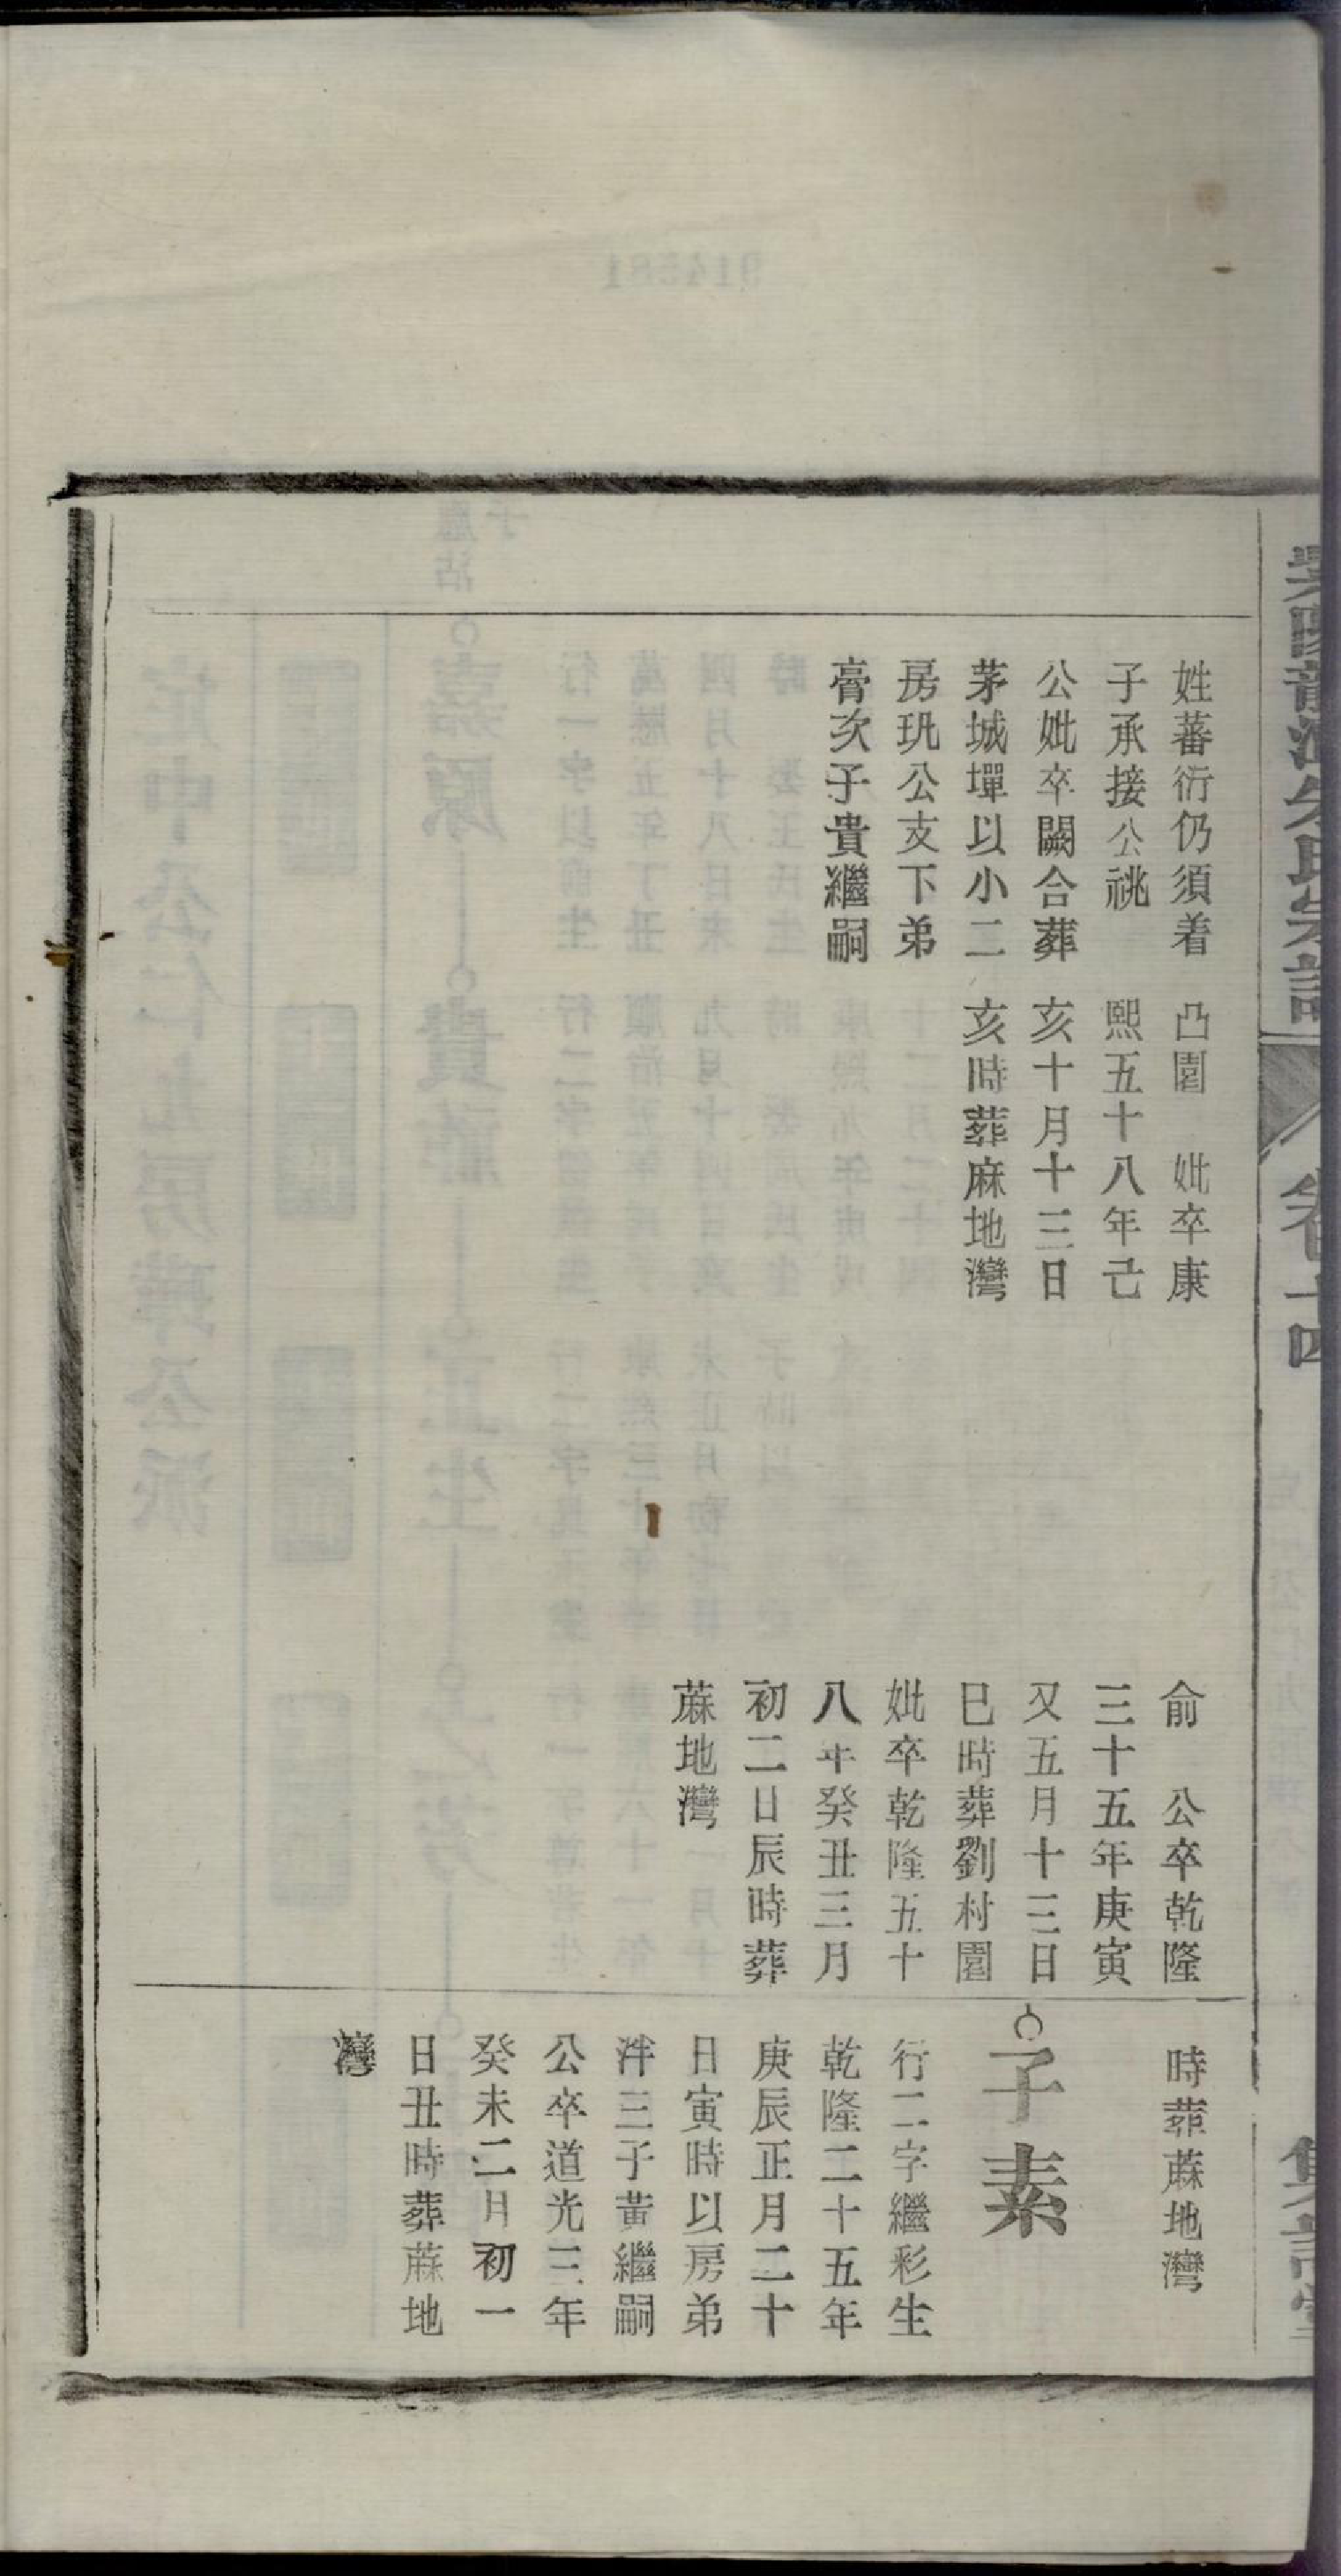 姓蕃衍仍須着
子承接公祧
公妣卒闕合葬
茅城墠以小二
房玑公支下弟
膏次子貴繼嗣
凸園　妣卒康
熙五十八年己
亥十月十三日
亥時葬麻地灣
俞　公卒乾隆
三十五年庚寅
又五月十三日
巳時葬劉村園
妣卒乾隆五十
八年癸丑三月
初二日辰時葬
蔴地灣
時葬蔴地灣
子素
行二字繼彩生
乾隆二十五年
庚辰正月二十
日寅時以房弟
泮三子黃繼嗣
公卒道光三年
癸未二月初一
日丑時葬蔴地
灣
卷十四